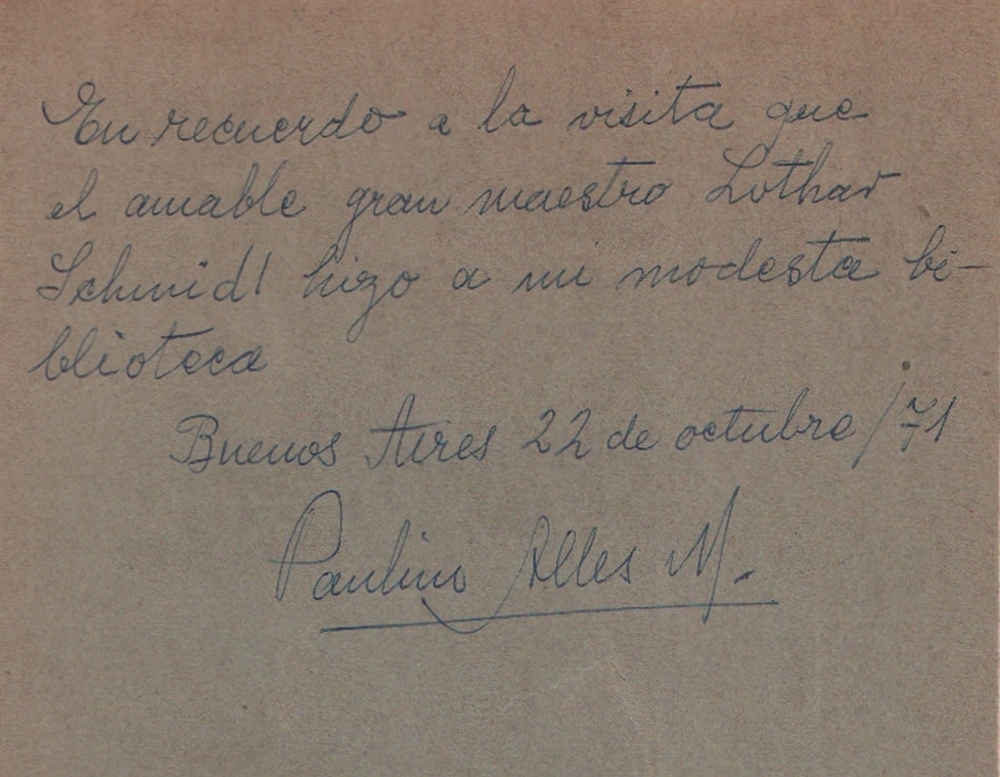 En recuerdo a la visita que
el amable gran maestro Lothar
Schmidt hizo a mi modesta bi-
blioteca
Buenos Aires 22 de octubre/71
Paulino Alles M.